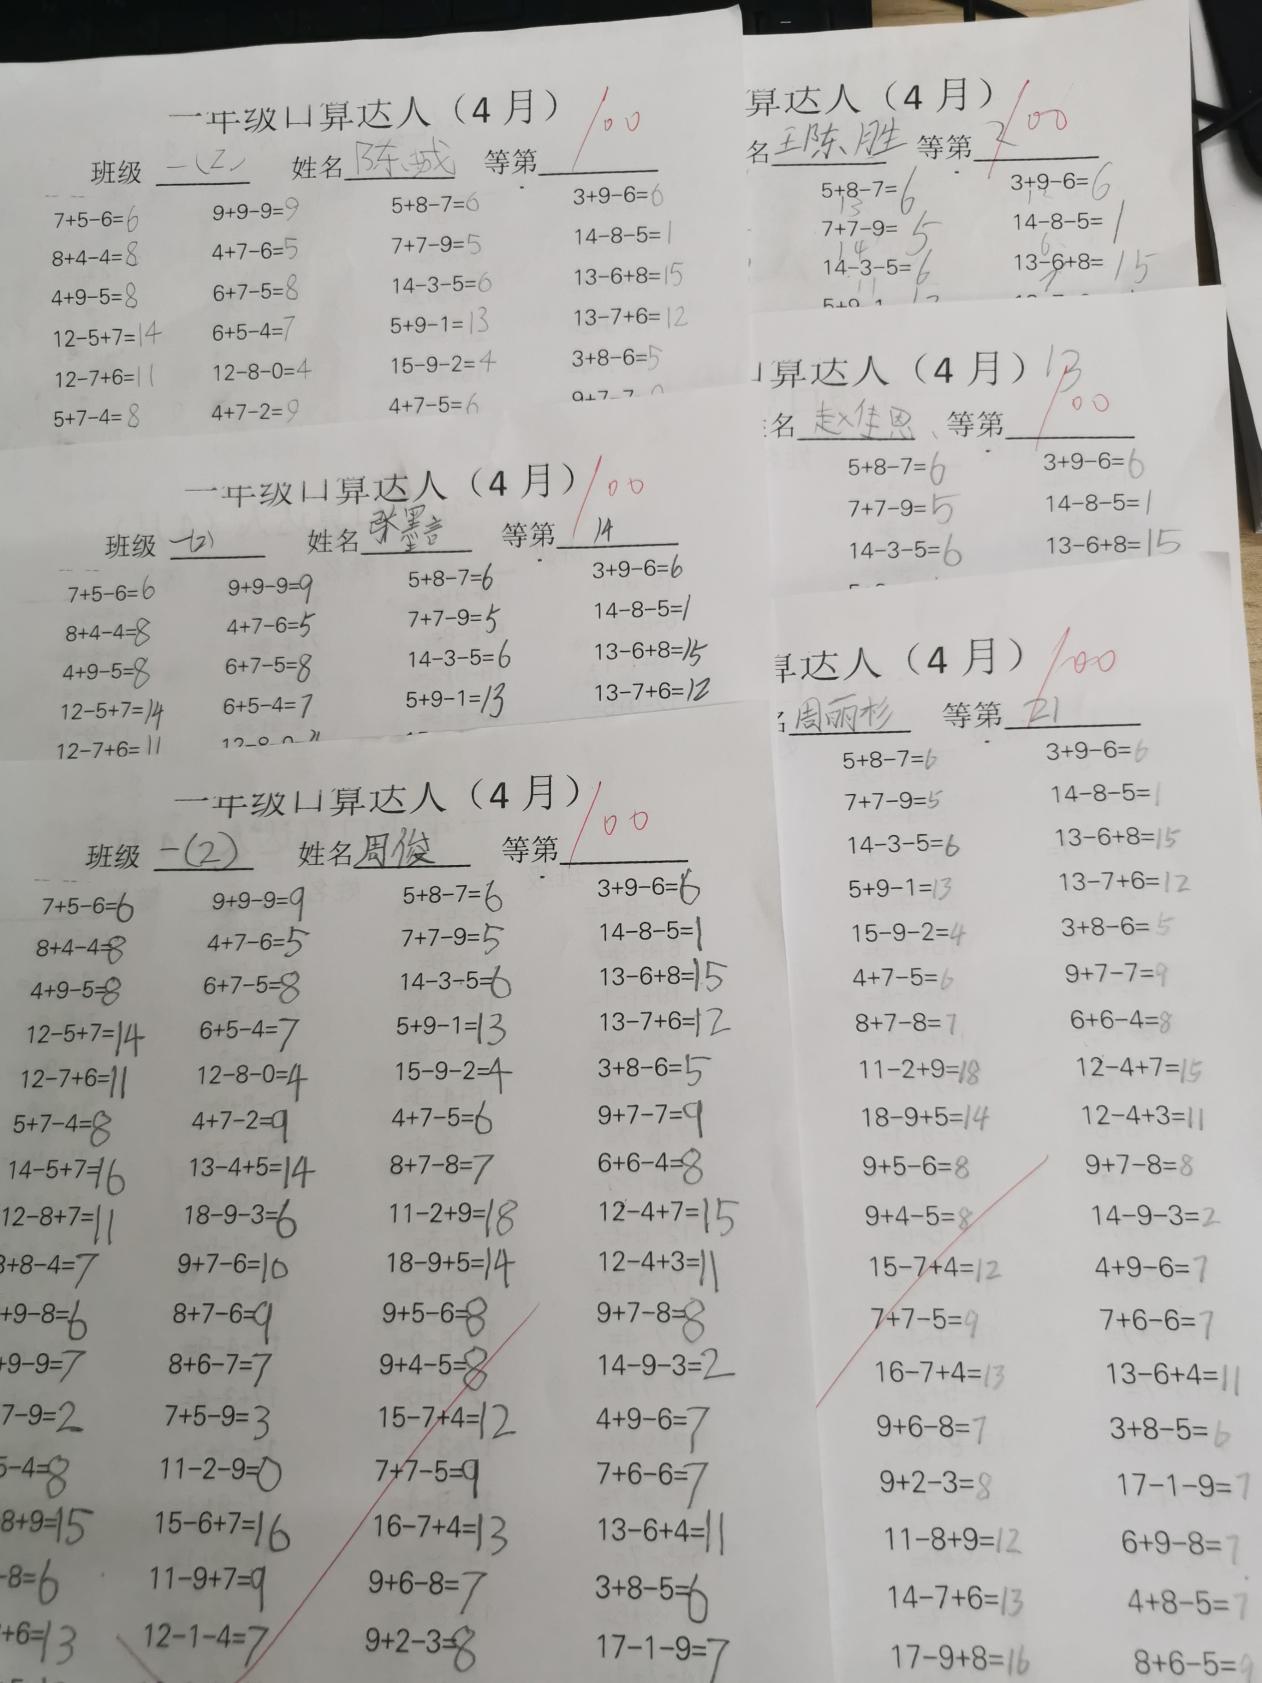 一年级口算达人（4月） 100
班级 一(2) 姓名 陈城 等第
7+5-6=6 9+9-9=9 5+8-7=6 3+9-6=6
8+4-4=8 4+7-6=5 7+7-9=5 14-8-5=1
4+9-5=8 6+7-5=8 14-3-5=6 13-6+8=15
12-5+7=14 6+5-4=7 5+9-1=13 13-7+6=12
12-7+6=11 12-8-0=4 15-9-2=4 3+8-6=5
5+7-4=8 4+7-2=9 4+7-5=6 9+7-7=9
算达人（4月） 100
名 王陈胜 等第 2
5+8-7=6 3+9-6=6
13 12
7+7-9=5 14-8-5=1
14 6
14-3-5=6 13-6+8=15
11 7
5+9-1=13
口算达人（4月） 13 100
姓名 赵佳恩 等第
5+8-7=6 3+9-6=6
7+7-9=5 14-8-5=1
14-3-5=6 13-6+8=15
一年级口算达人（4月） 100
班级 一(2) 姓名 张墨言 等第 14
7+5-6=6 9+9-9=9 5+8-7=6 3+9-6=6
8+4-4=8 4+7-6=5 7+7-9=5 14-8-5=1
4+9-5=8 6+7-5=8 14-3-5=6 13-6+8=15
12-5+7=14 6+5-4=7 5+9-1=13 13-7+6=12
12-7+6=11 12-8-0=4
算达人（4月） 100
名 周丽杉 等第 21
5+8-7=6 3+9-6=6
7+7-9=5 14-8-5=1
14-3-5=6 13-6+8=15
5+9-1=13 13-7+6=12
15-9-2=4 3+8-6=5
4+7-5=6 9+7-7=9
8+7-8=7 6+6-4=8
11-2+9=18 12-4+7=15
18-9+5=14 12-4+3=11
9+5-6=8 9+7-8=8
9+4-5=8 14-9-3=2
15-7+4=12 4+9-6=7
7+7-5=9 7+6-6=7
16-7+4=13 13-6+4=11
9+6-8=7 3+8-5=6
9+2-3=8 17-1-9=7
11-8+9=12 6+9-8=7
14-7+6=13 4+8-5=7
17-9+8=16 8+6-5=9
一年级口算达人（4月） 100
班级 一(2) 姓名 周俊 等第
7+5-6=6 9+9-9=9 5+8-7=6 3+9-6=6
8+4-4=8 4+7-6=5 7+7-9=5 14-8-5=1
4+9-5=8 6+7-5=8 14-3-5=6 13-6+8=15
12-5+7=14 6+5-4=7 5+9-1=13 13-7+6=12
12-7+6=11 12-8-0=4 15-9-2=4 3+8-6=5
5+7-4=8 4+7-2=9 4+7-5=6 9+7-7=9
14-5+7=16 13-4+5=14 8+7-8=7 6+6-4=8
12-8+7=11 18-9-3=6 11-2+9=18 12-4+7=15
3+8-4=7 9+7-6=10 18-9+5=14 12-4+3=11
+9-8=6 8+7-6=9 9+5-6=8 9+7-8=8
+9-9=7 8+6-7=7 9+4-5=8 14-9-3=2
7-9=2 7+5-9=3 15-7+4=12 4+9-6=7
5-4=8 11-2-9=0 7+7-5=9 7+6-6=7
8+9=15 15-6+7=16 16-7+4=13 13-6+4=11
-8=6 11-9+7=9 9+6-8=7 3+8-5=6
+6=13 12-1-4=7 9+2-3=8 17-1-9=7